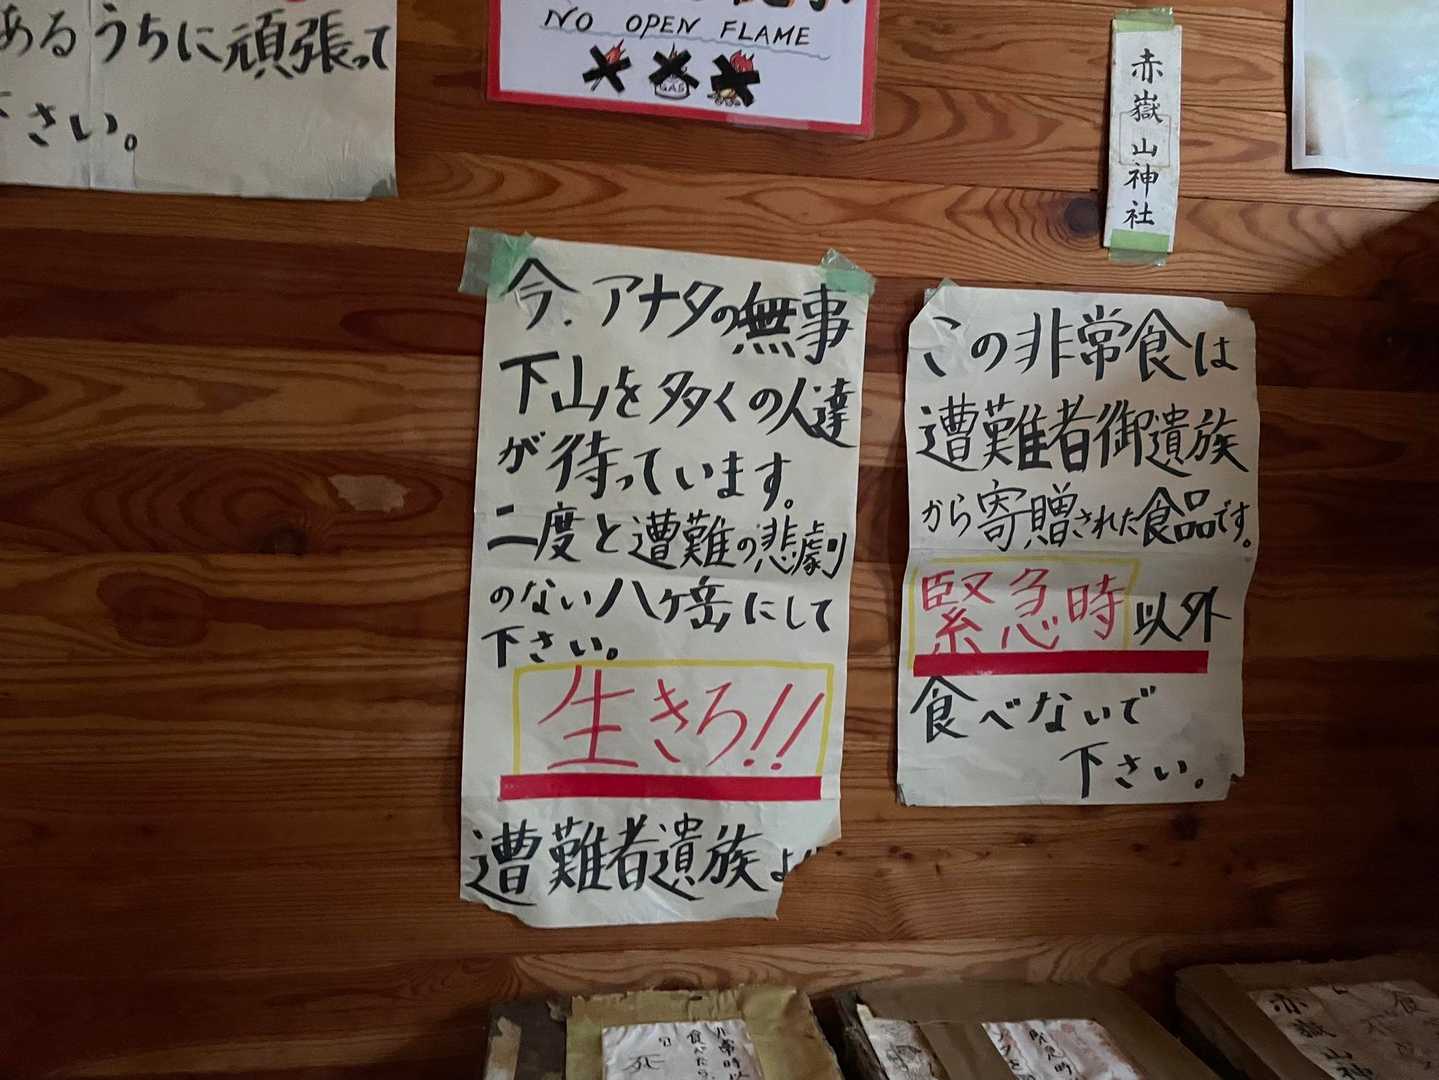 あるうちに頑張って
下さい。
NO OPEN FLAME
GAS
赤嶽山神社
今、アナタの無事
下山を多くの人達
が待っています。
二度と遭難の悲劇
のない八ヶ岳にして
下さい。
生きろ!!
遭難者遺族よ
この非常食は
遭難者御遺族
から寄贈された食品です。
緊急時以外
食べないで
下さい。
非常時以
食べたら
死
赤嶽山神